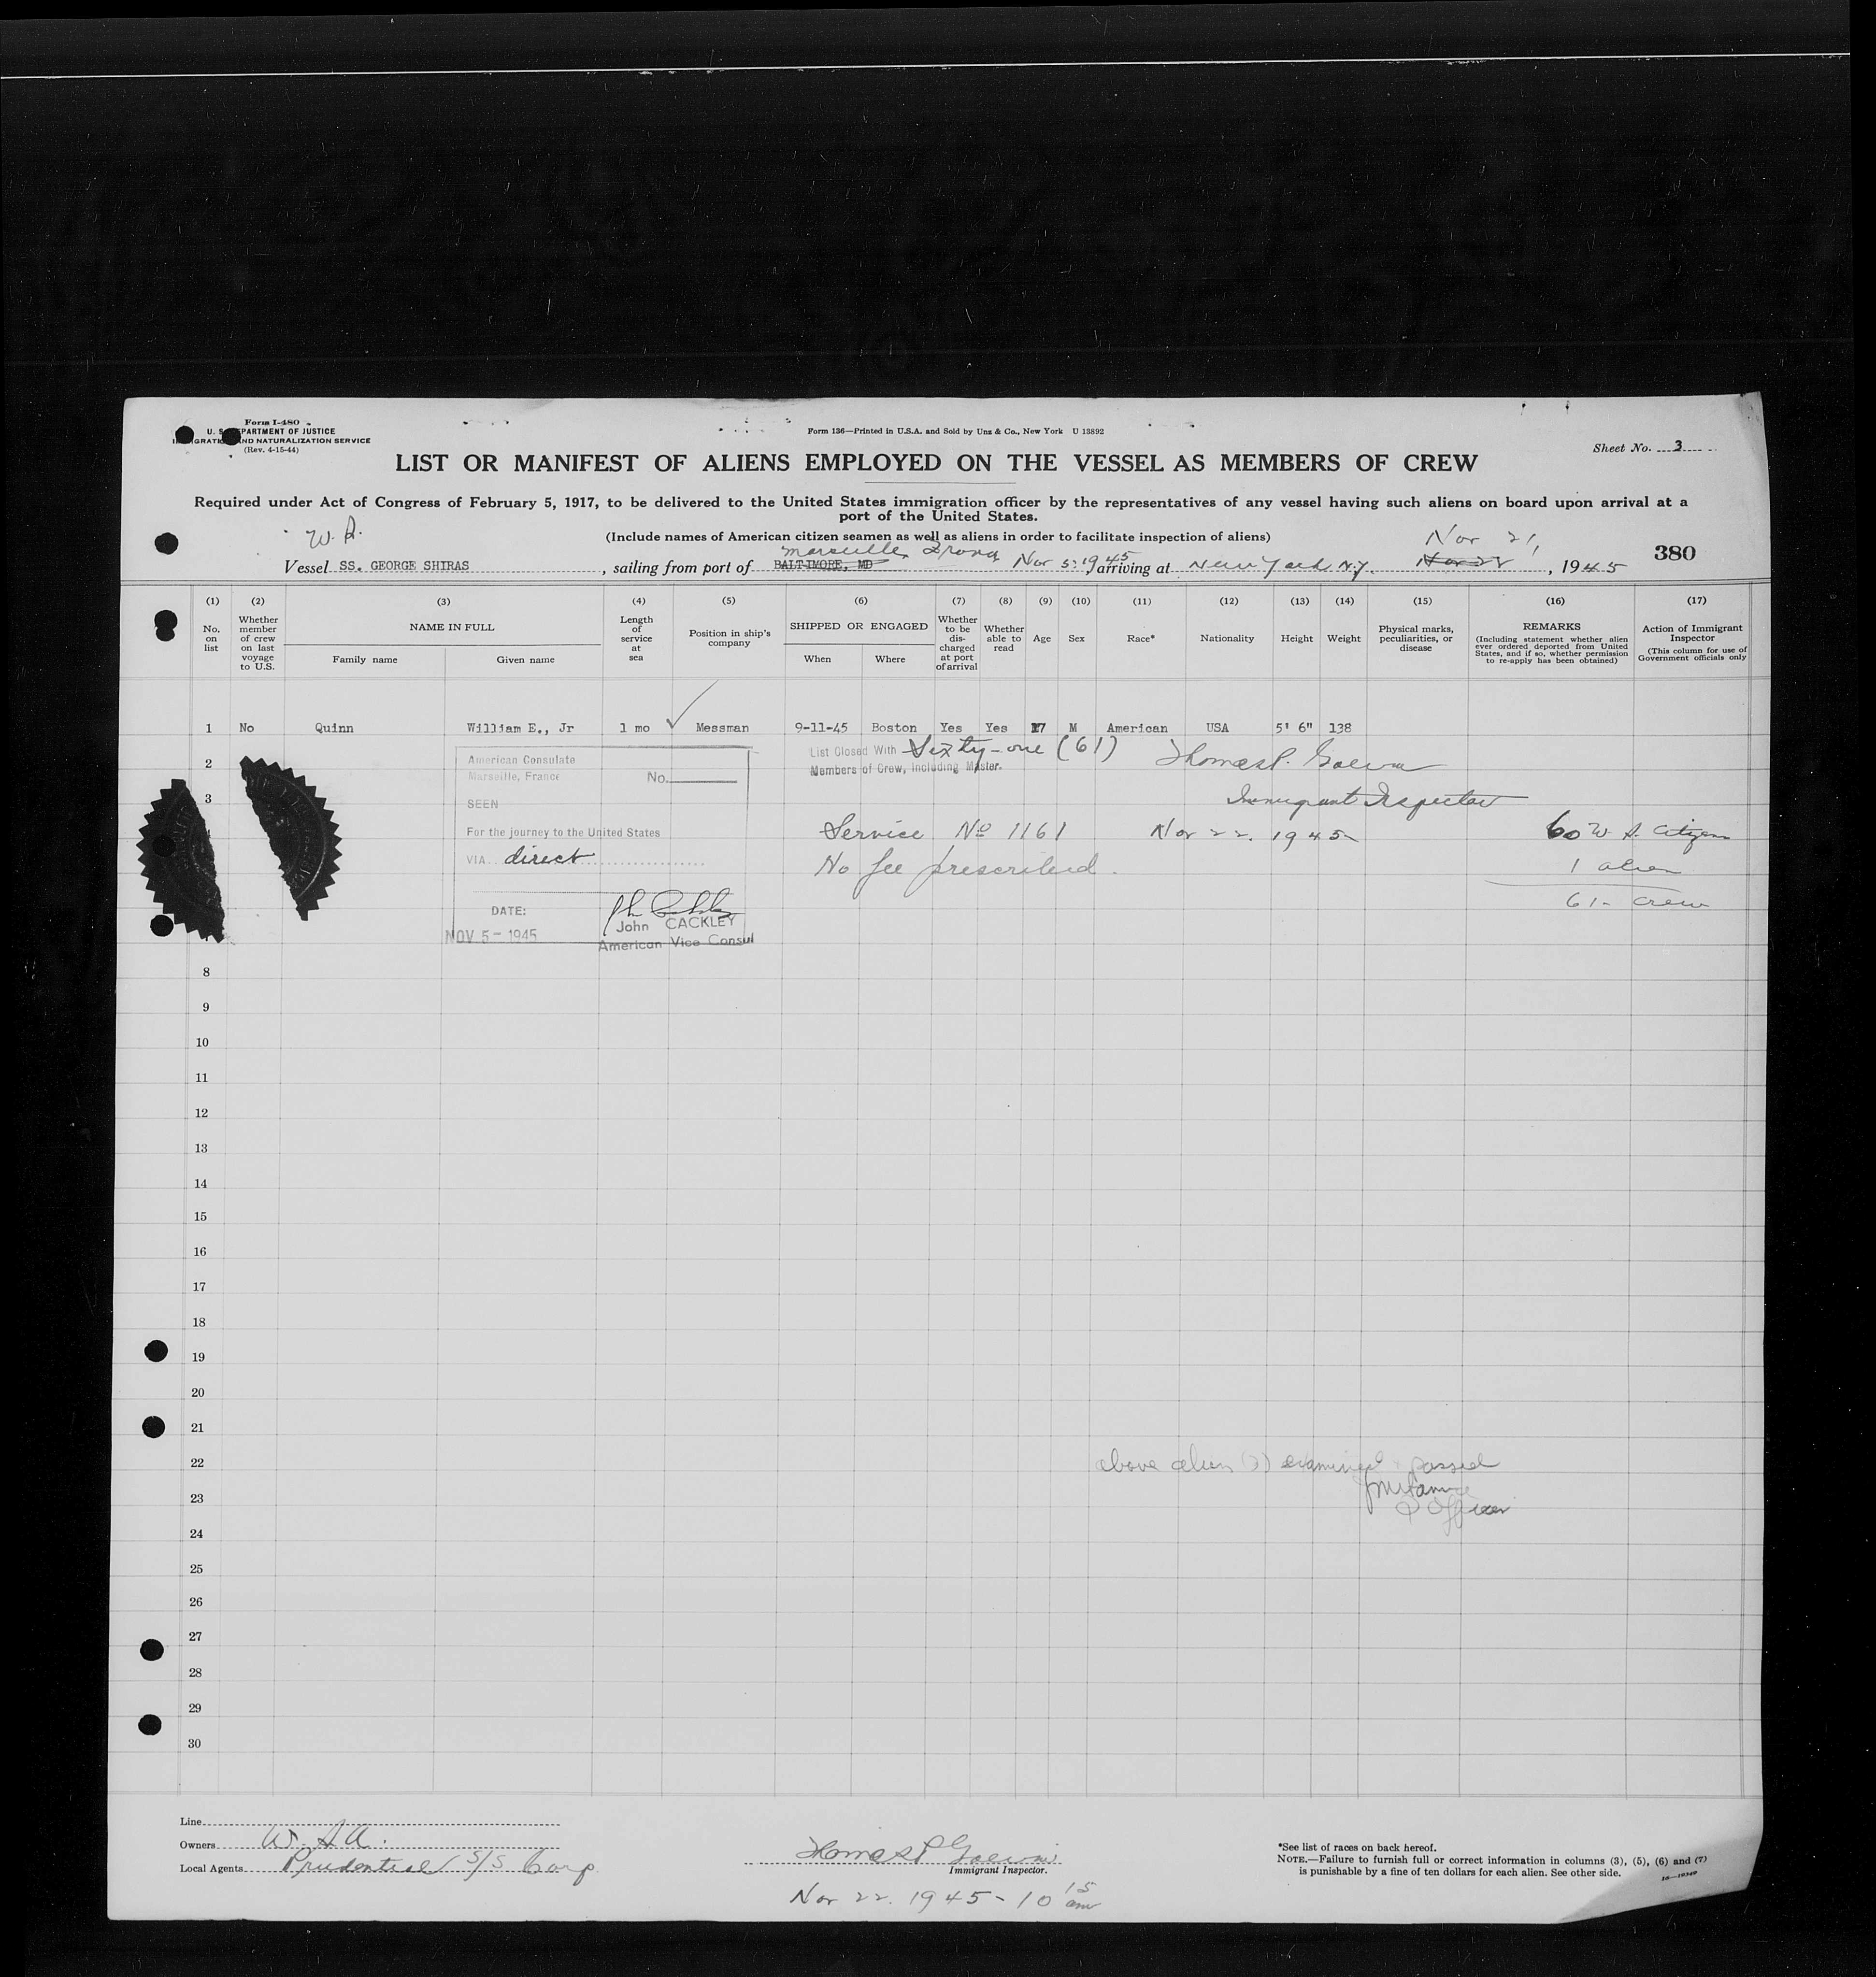 Form I-480
U. S. DEPARTMENT OF JUSTICE
IMMIGRATION AND NATURALIZATION SERVICE
(Rev. 4-15-44)
Form 136—Printed in U.S.A. and Sold by Unz & Co., New York U 13892
Sheet No. 3
LIST OR MANIFEST OF ALIENS EMPLOYED ON THE VESSEL AS MEMBERS OF CREW
Required under Act of Congress of February 5, 1917, to be delivered to the United States immigration officer by the representatives of any vessel having such aliens on board upon arrival at a
port of the United States.
(Include names of American citizen seamen as well as aliens in order to facilitate inspection of aliens)
Marseille, Nor 21,
Vessel SS. GEORGE SHIRAS, sailing from port of BALTIMORE, MD Nov 5: 1945 arriving at New York N.Y. Nov 22, 1945 380
(1) (2) (3) (4) (5) (6) (7) (8) (9) (10) (11) (12) (13) (14) (15) (16) (17)
No. on list
Whether member of crew on last voyage to U.S.
NAME IN FULL
Family name Given name
Length of service at sea
Position in ship's company
SHIPPED OR ENGAGED
When Where
Whether to be discharged at port of arrival
Whether able to read
Age
Sex
Race*
Nationality
Height
Weight
Physical marks, peculiarities, or disease
REMARKS
(Including statement whether alien ever ordered deported from United States, and if so, whether permission to re-apply has been obtained)
Action of Immigrant Inspector
(This column for use of Government officials only
1 No Quinn William E., Jr 1 mo Messman 9-11-45 Boston Yes Yes 17 M American USA 5' 6" 138
List Closed With Sixty-one (61)
Members of Crew, Including Master.
Thomas P.
Immigrant Inspector
American Consulate
Marseille, France
No.
2
3
SEEN
For the journey to the United States
VIA direct
Service No 1161 Nov 22. 1945
No fee prescribed.
60 U. S. Citizens
1 alien
61- crew
DATE:
NOV 5 - 1945
John CACKLEY
American Vice Consul
8
9
10
11
12
13
14
15
16
17
18
19
20
21
22
above alien examined passed
23
Officer
24
25
26
27
28
29
30
Line
Owners W. S. A.
Local Agents Prudential S/S Corp.
Thomas P
Immigrant Inspector.
Nov 22. 1945 - 10 15 am
*See list of races on back hereof.
NOTE.—Failure to furnish full or correct information in columns (3), (5), (6) and (7)
is punishable by a fine of ten dollars for each alien. See other side.